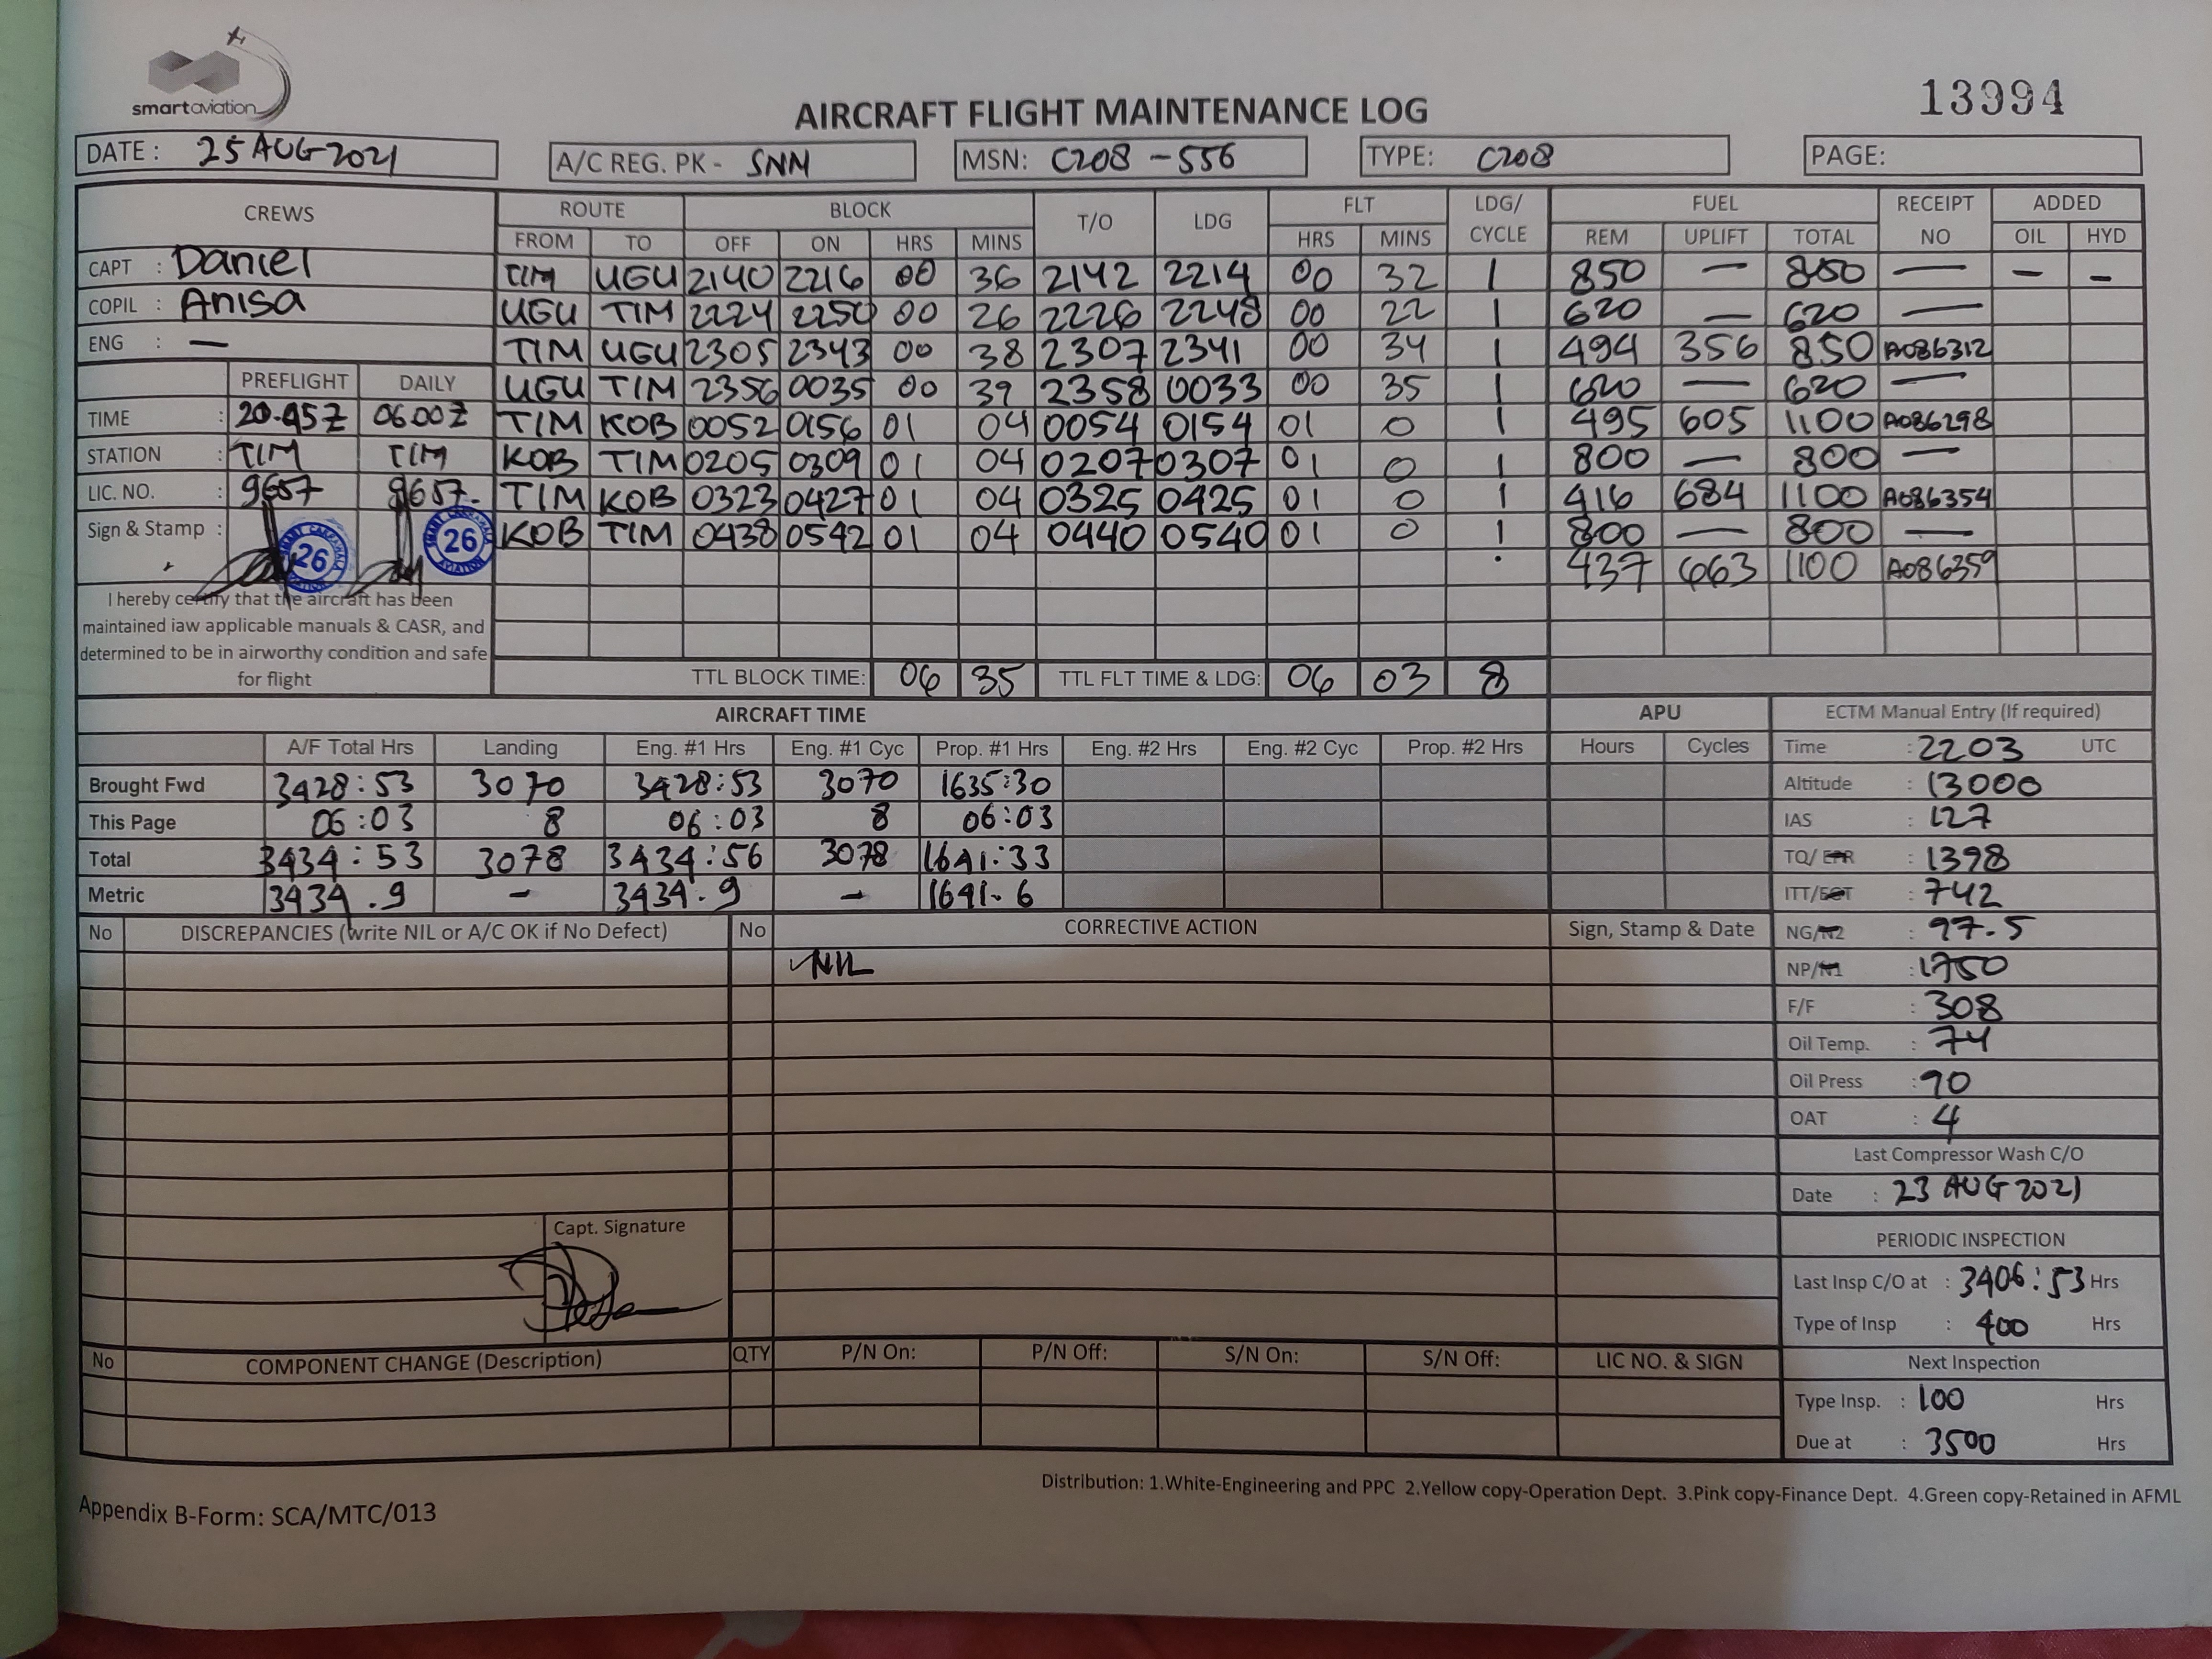 smartaviation
13994
AIRCRAFT FLIGHT MAINTENANCE LOG
DATE : 25 AUG 2021 A/C REG. PK - SNM MSN: C208 - 556 TYPE: C208 PAGE:
CREWS ROUTE BLOCK T/O LDG FLT LDG/ CYCLE FUEL RECEIPT NO ADDED
FROM TO OFF ON HRS MINS HRS MINS REM UPLIFT TOTAL OIL HYD
CAPT : Daniel TIM UGU 2140 2216 00 36 2142 2214 00 32 1 850 — 850 — — —
COPIL : Anisa UGU TIM 2224 2250 00 26 2226 2248 00 22 1 620 — 620 —
ENG : — TIM UGU 2305 2343 00 38 2307 2341 00 34 1 494 356 850 A086312
PREFLIGHT DAILY UGU TIM 2356 0035 00 39 2358 0033 00 35 1 620 — 620 —
TIME : 20.45Z 0600Z TIM KOB 0052 0156 01 04 0054 0154 01 0 1 495 605 1100 A086298
STATION : TIM TIM KOB TIM 0205 0309 01 04 0207 0307 01 0 1 800 — 800 —
LIC. NO. : 9657 9657 TIM KOB 0323 0427 01 04 0325 0425 01 0 1 416 684 1100 A086354
Sign & Stamp : 26 26 KOB TIM 0438 0542 01 04 0440 0540 01 0 1 800 — 800 —
437 663 1100 A086359
I hereby certify that the aircraft has been
maintained iaw applicable manuals & CASR, and
determined to be in airworthy condition and safe
for flight
TTL BLOCK TIME: 06 35 TTL FLT TIME & LDG: 06 03 8
AIRCRAFT TIME APU ECTM Manual Entry (If required)
A/F Total Hrs Landing Eng. #1 Hrs Eng. #1 Cyc Prop. #1 Hrs Eng. #2 Hrs Eng. #2 Cyc Prop. #2 Hrs Hours Cycles Time : 2203 UTC
Brought Fwd 3428:53 3070 3428:53 3070 1635:30 Altitude : 13000
This Page 06:03 8 06:03 8 06:03 IAS : 127
Total 3434:53 3078 3434:56 3078 1641:33 TQ/EPR : 1398
Metric 3434.9 - 3434.9 - 1641.6 ITT/EGT : 742
No DISCREPANCIES (write NIL or A/C OK if No Defect) No CORRECTIVE ACTION Sign, Stamp & Date NG/N2 : 97.5
NIL NP/N1 : 1750
F/F : 308
Oil Temp. : 74
Oil Press : 90
OAT : 4
Last Compressor Wash C/O
Date : 23 AUG 2021
Capt. Signature
PERIODIC INSPECTION
Last Insp C/O at : 3406:53 Hrs
Type of Insp : 400 Hrs
No COMPONENT CHANGE (Description) QTY P/N On: P/N Off: S/N On: S/N Off: LIC NO. & SIGN Next Inspection
Type Insp. : 100 Hrs
Due at : 3500 Hrs
Distribution: 1.White-Engineering and PPC 2.Yellow copy-Operation Dept. 3.Pink copy-Finance Dept. 4.Green copy-Retained in AFML
Appendix B-Form: SCA/MTC/013